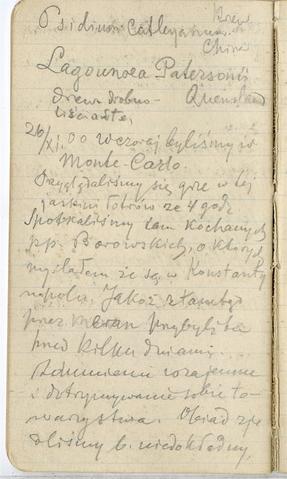 Psidium Catleyanum Drzew.
China
Lagounoea Patersonii
drzewo drobno- Quensland
listiaste,
26/XI. 00 Wczoraj byliśmy w
Monte-Carlo.
Przyglądaliśmy się grze w tej
jaskini łotrów ze 4 godz.
Spotkaliśmy tam Kochanych
pp. Borowskich, o których
myślałem że są w Konstanty
nopolu. Jakoż stamtąd
przez przybyli tu
przed kilku dniami.
Zdumienie wzajemne
i dotrzymywanie sobie to-
warzystwa. Obiad zje
dliśmy b. niedokładny,